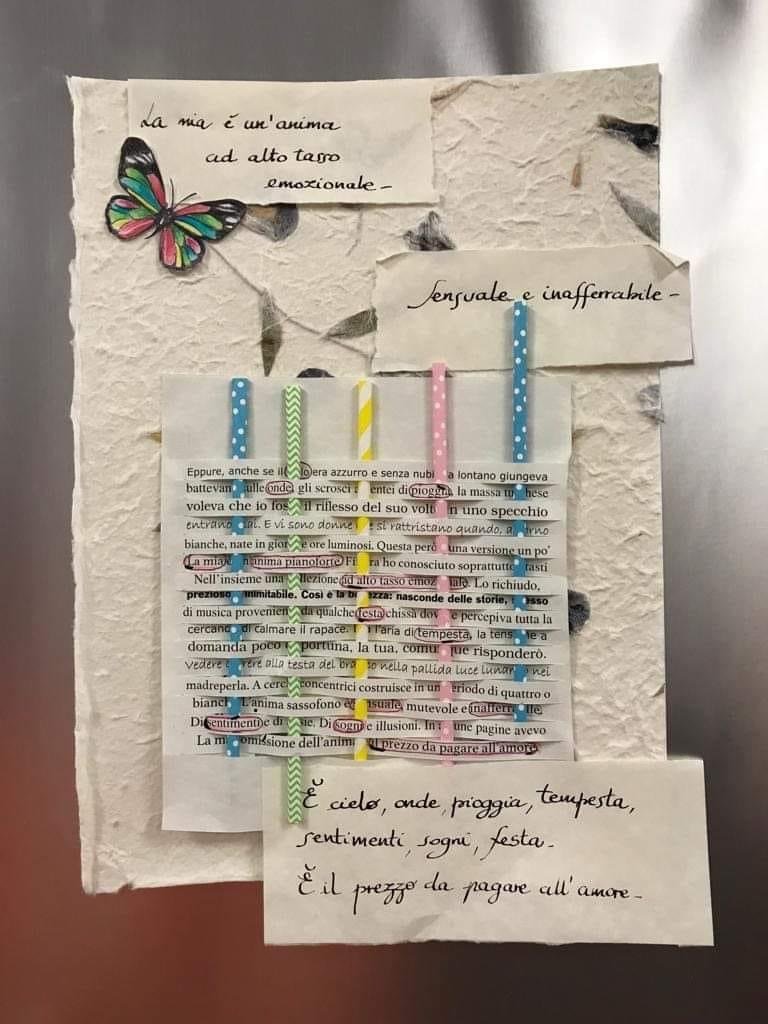 La mia è un'anima
ad alto tasso
emozionale-
Sensuale e inafferrabile-
Eppure, anche se il era azzurro e senza nubi a lontano giungeva
battevan sulle onde, gli scrosci di pioggia, la massa
voleva che io il riflesso del suo volto in uno specchio
entrano E vi sono donne che si rattristano quando,
bianche, nate in giorni e ore luminosi. Questa però una versione un po'
La mia anima pianoforte Fin ra ho conosciuto soprattutto
Nell'insieme una llezione ad alto tasso emoz ale. Lo richiudo,
prezioso inimitabile. Così è la bellezza: nasconde delle storie, spesso
di musica provenien da qualche festa chissà dov e percepiva tutta la
cercando di calmare il rapace. l'aria di tempesta, la
domanda poco portuna, la tua, comu que risponderò.
Vedere correre alla testa del branco nella pallida luce lunare nei
madreperla. A cerchi concentrici costruisce in un periodo di quattro o
bianchi L'anima sassofono è sensuale, mutevole e inafferr ile.
Di sentimenti e di Di sogni e illusioni. In une pagine avevo
La mi omissione dell'anima il prezzo da pagare all'amore
È cielo, onde, pioggia, tempesta,
sentimenti, sogni, festa-
È il prezzo da pagare all'amore-